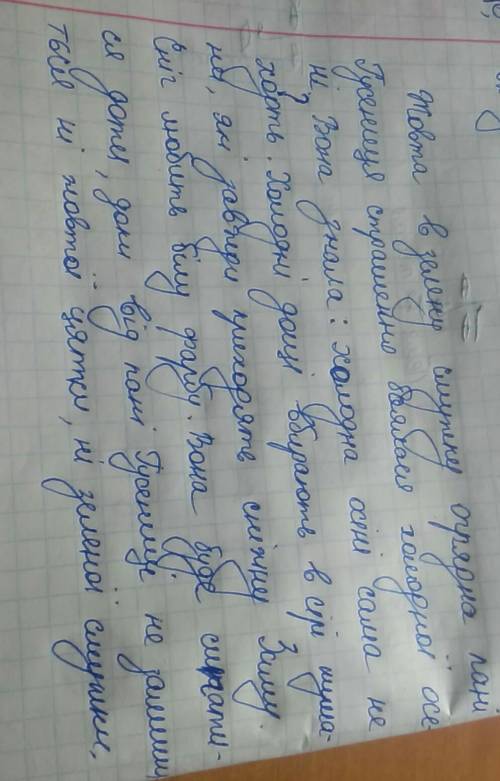 Жовта в зелену смужку огрядна пані
Гусениця страшенно боялася холодної осе-
ні. Вона знала: холодна осінь сама не
ходить. Холодні дощі вбирають в сірі тума-
ни, які завжди приводять сніжну Зиму.
Сніг любить білу фарбу. Вона буде сипати-
ся доти, доки від пані Гусениці не залиши
ться ні жовтої цятки, ні зеленої смужки,